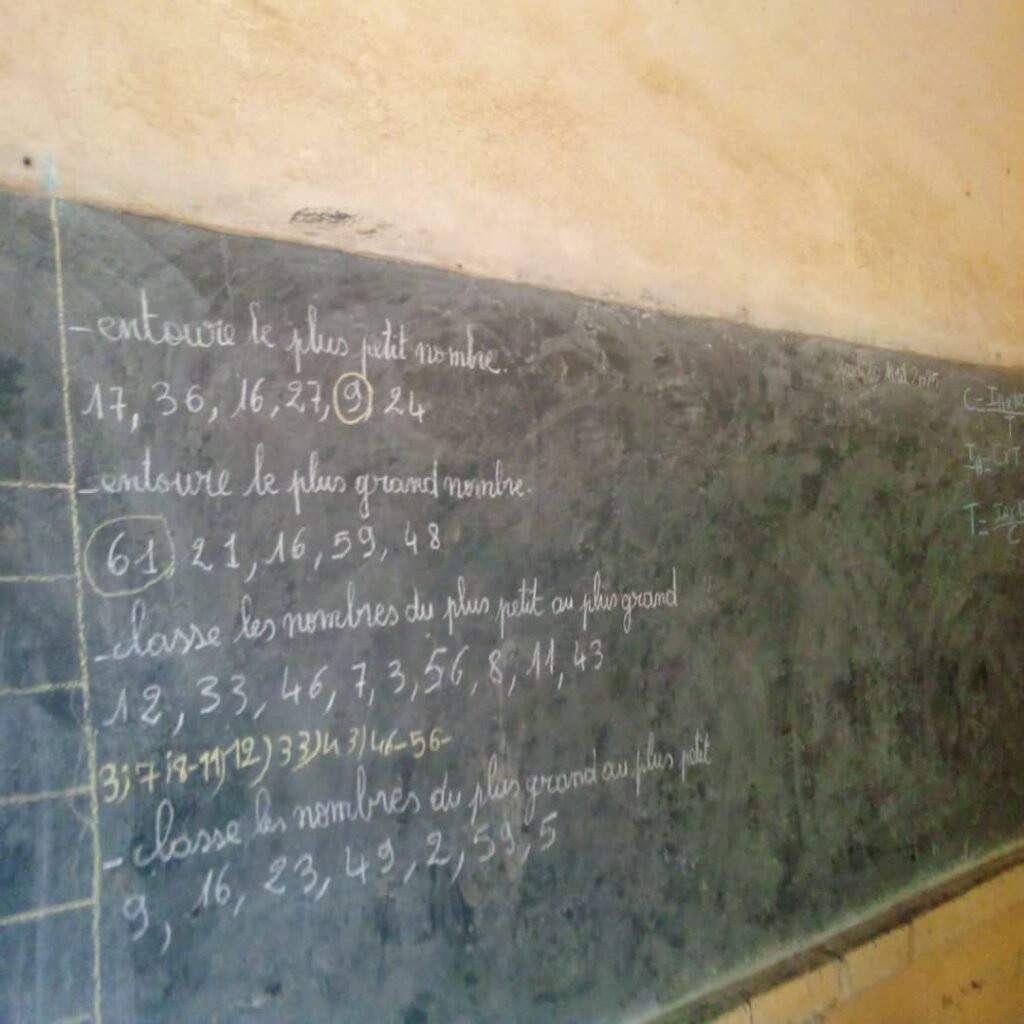 -entoure le plus petit nombre.
17, 36, 16, 27, 9 24
-entoure le plus grand nombre.
61 21, 16, 59, 48
-classe les nombres du plus petit au plus grand
12, 33, 46, 7, 3, 56, 8, 11, 43
3; 7 ; 8-11) 12) 33) 43) 46-56-
-classe les nombres du plus grand au plus petit
9, 16, 23, 49, 2, 59, 5